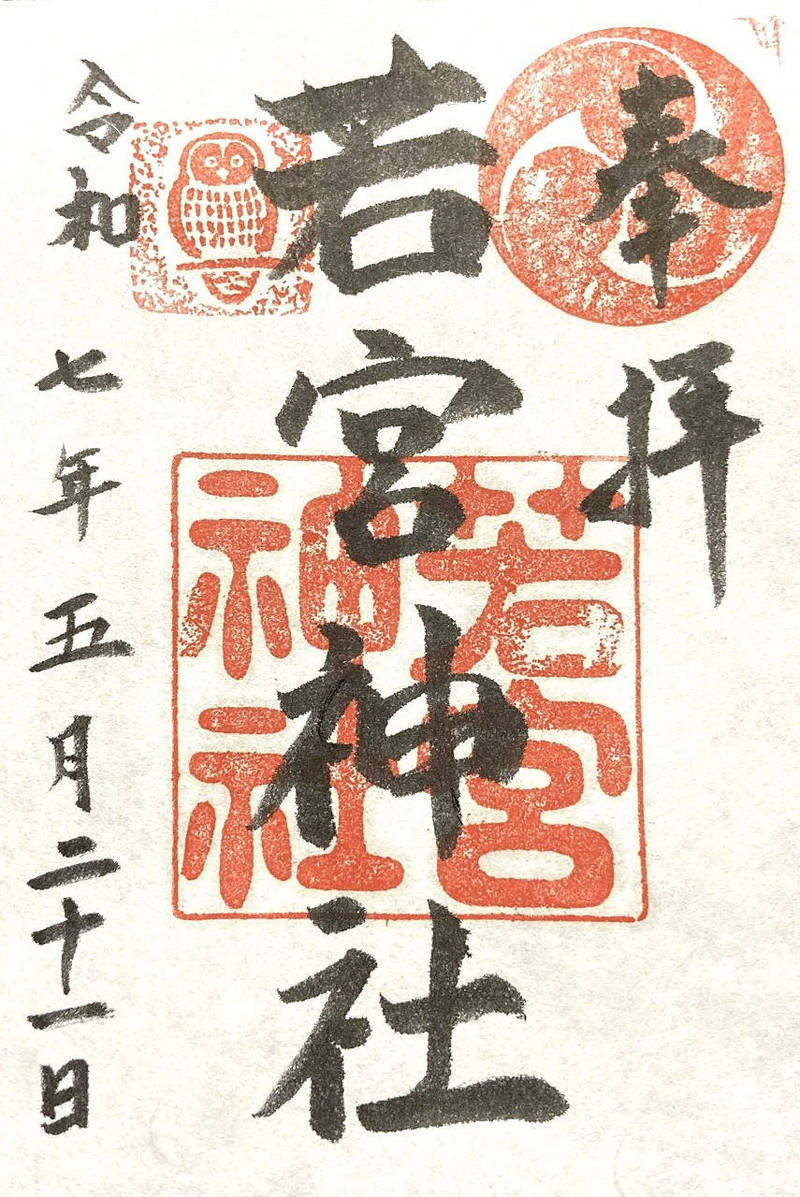 奉拝
若宮神社
若宮
神社
令和七年五月二十一日